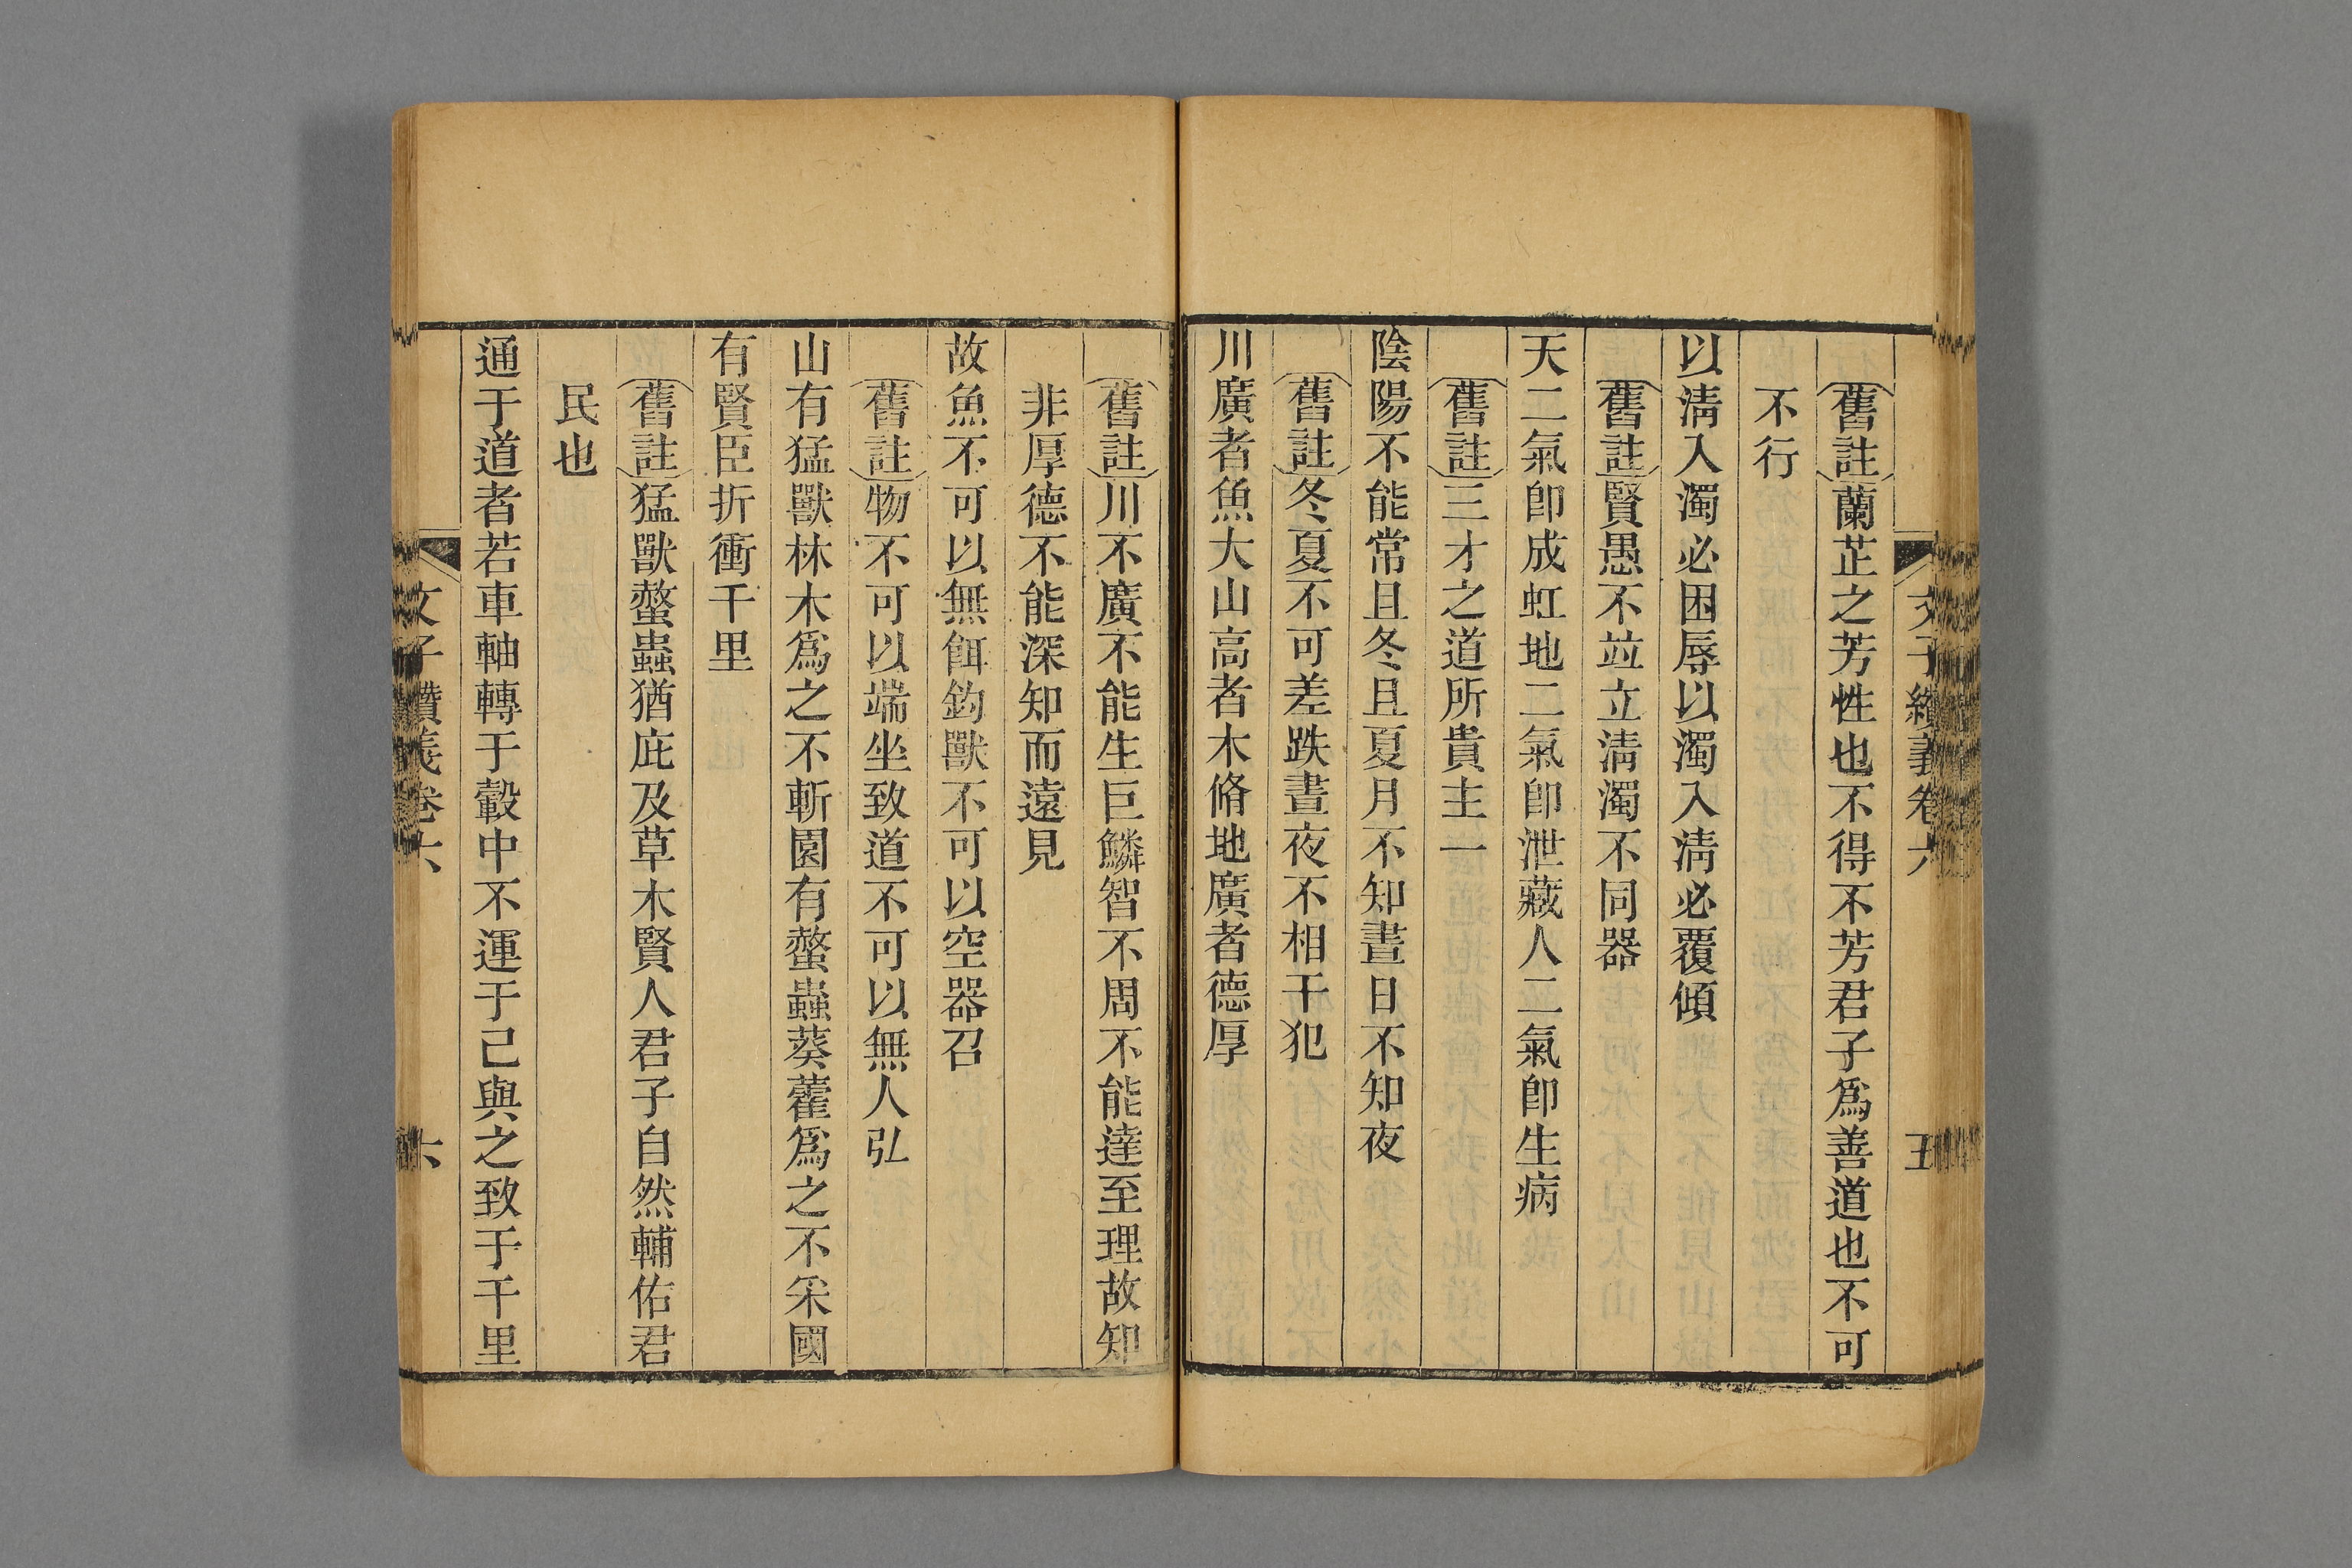 文子纘義卷六 五
舊註蘭芷之芳性也不得不芳君子爲善道也不可
不行
以淸入濁必困辱以濁入淸必覆傾
舊註賢愚不竝立淸濁不同器
天二氣卽成虹地二氣卽泄藏人二氣卽生病
舊註三才之道所貴主一
陰陽不能常且冬且夏月不知晝日不知夜
舊註冬夏不可差跌晝夜不相干犯
川廣者魚大山高者木脩地廣者德厚
舊註川不廣不能生巨鱗智不周不能達至理故知
非厚德不能深知而遠見
故魚不可以無餌鈞獸不可以空器召
舊註物不可以端坐致道不可以無人弘
山有猛獸林木爲之不斬園有螫蟲葵藿爲之不采國
有賢臣折衝千里
舊註猛獸螫蟲猶庇及草木賢人君子自然輔佑君
民也
通于道者若車軸轉于轂中不運于己與之致于千里
文子纘義卷六 六